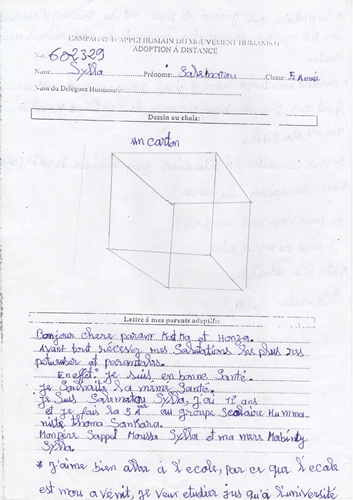 CAMPAGNE D'APPUI HUMAIN DU MOUVEMENT HUMANISTE
ADOPTION À DISTANCE
No: 602329
Nom: Sylla Prénoms: Salematou Classe: 5 Année
Nom du Délégués Humaniste
Dessin au choix:
un carton
Lettre à mes parents adoptifs:
Bonjour chers parain Katka et Honza.
Avant tout recevez mes Salutations les plus res
petueuser et parentales.
En effet: je suis en bonne Santé.
Je Souhaite la même Santé.
Je Suis Salematou Sylla, j'ai 11 ans
et je fais la 5 A au groupe Scolaire Humma
niste thoma Sankara.
Monpère Sappel Moussa Sylla et ma mère Mahinty
Sylla.
* J'aime bien aller à l'ecole, par ce que l'ecole
est mon avénit, je veux etudier jus qu'à l'université